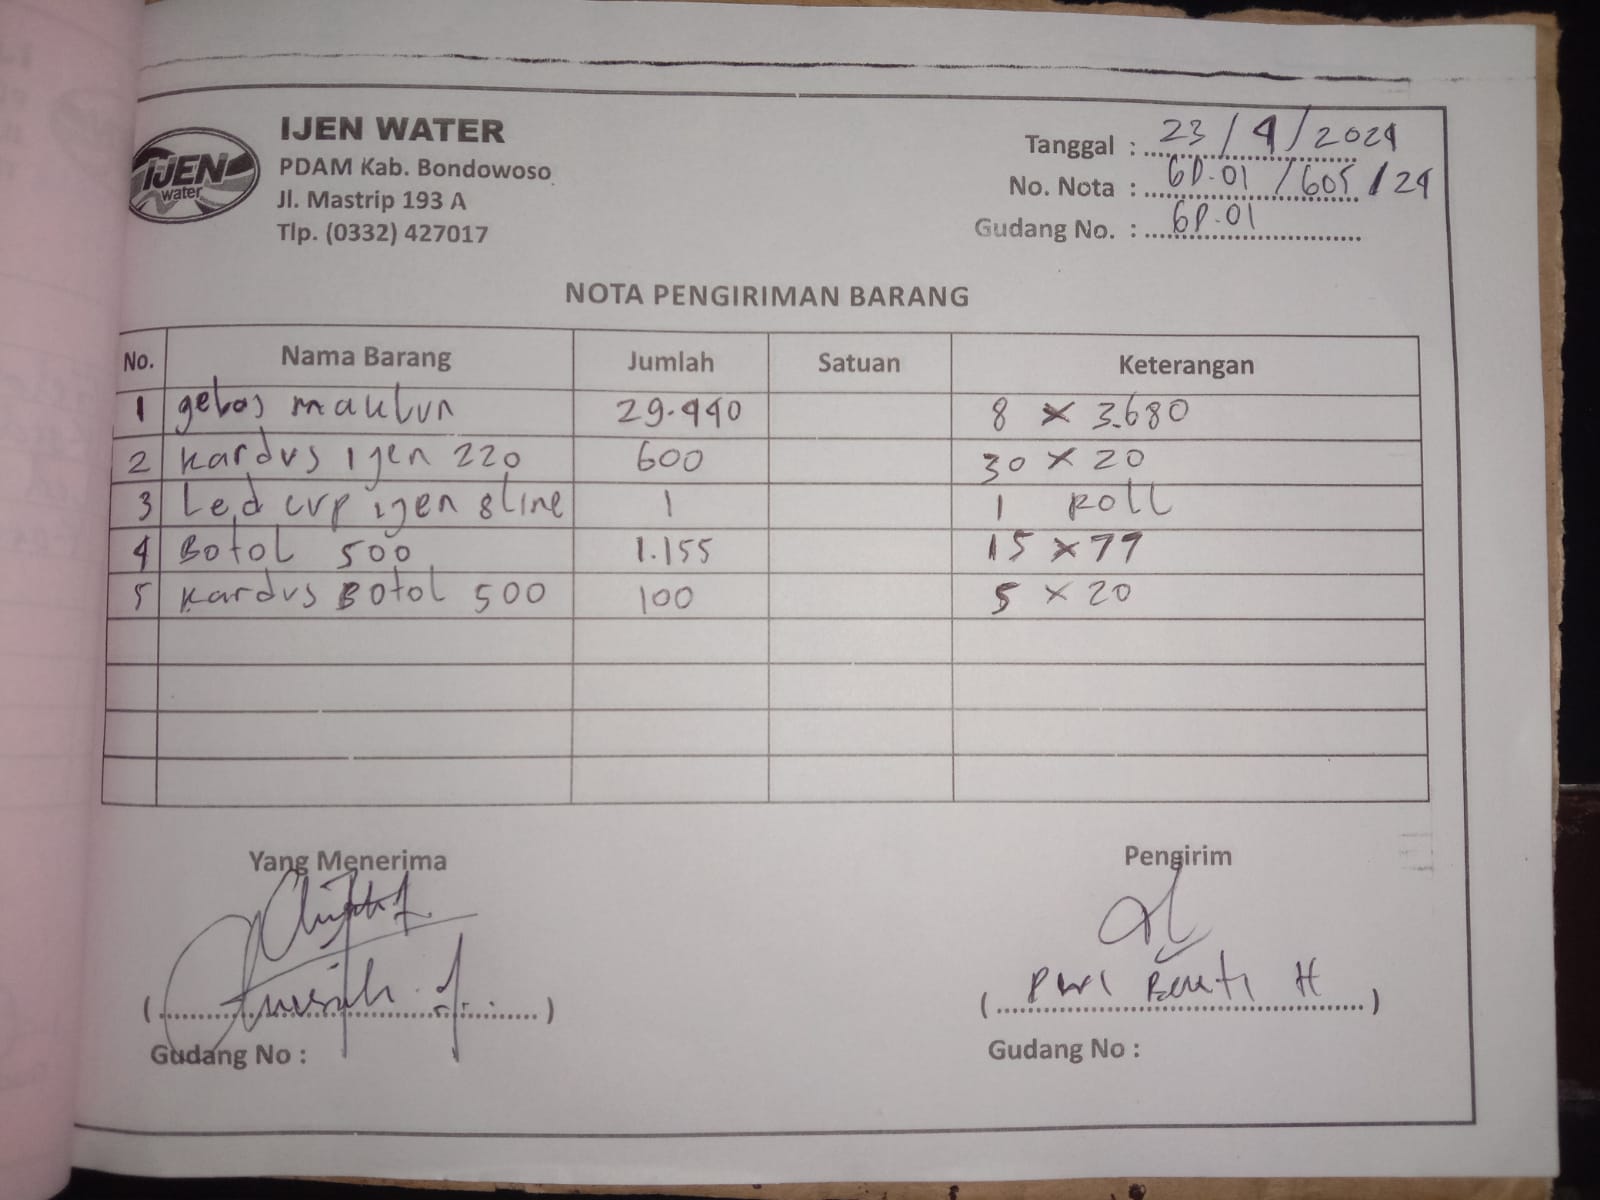 IJEN WATER
PDAM Kab. Bondowoso
Jl. Mastrip 193 A
Tlp. (0332) 427017
IJEN
water
Tanggal : 23 / 4 / 2024
No. Nota : GP.01 / 605 / 24
Gudang No. : GP.01
NOTA PENGIRIMAN BARANG
No. Nama Barang Jumlah Satuan Keterangan
1 gelas maklun 29.440 8 x 3.680
2 Kardus ijen 220 600 30 x 20
3 Led cup ijen 8line 1 1 Roll
4 Botol 500 1.155 15 x 77
5 Kardus Botol 500 100 5 x 20
Yang Menerima
Pengirim
H
Gudang No :
Gudang No :